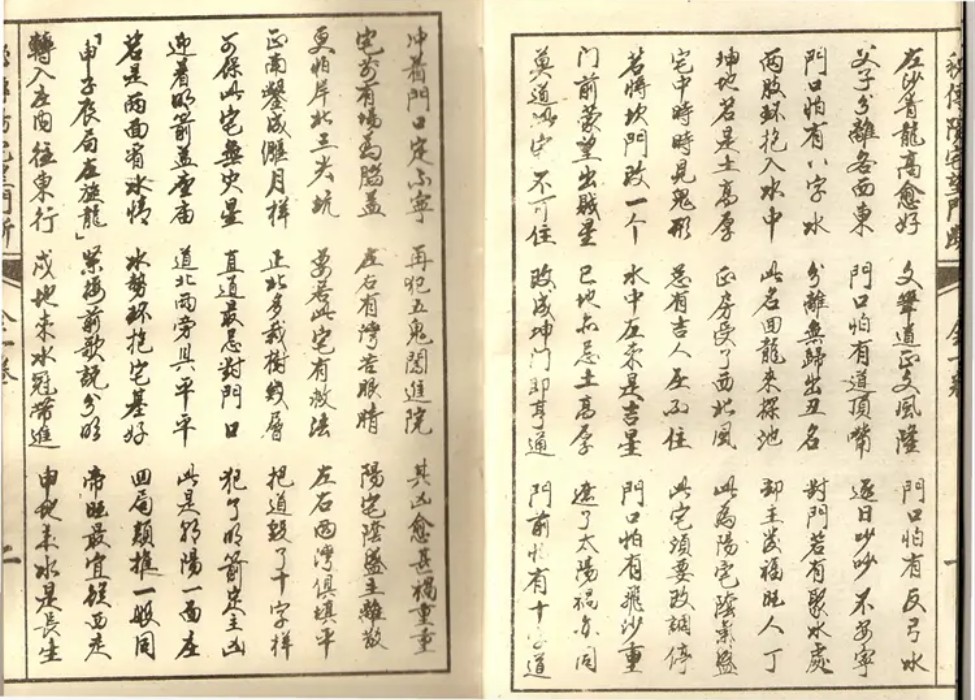 秘傳陽宅望門斷 全一卷 一
左沙青龍高愈好 文筆道正文風隆 門口怕有反弓水
父子分離各西東 門口怕有道頂嘴 逐日吵吵不安寧
門口怕有八字水 分離無歸出丑名 對門若有聚水處
两肢環抱入水中 此名回龍來探池 却主發福旺人丁
坤地若是土高厚 正房受了西北風 此為陽宅陰氣盛
宅中時時見鬼形 總有吉人在不住 此宅須要改調停
若將坎門改一个 水中左來是吉星 門口怕有飛沙重
门前蒙望出賊星 巳地亦忌土高厚 遮了太陽禍亦同
莫道此宅不可住 改成坤门即亨通 門前怕有十字道
冲着門口定不寧 再犯五鬼闖進院 其凶愈甚禍重重
宅前有場為腦盖 左右有灣苦眼睛 陽宅陰盛主離散
更怕岸北三尖坑 要若此宅有救法 左右两灣俱填平
正南鑿成偃月樣 正北多栽樹幾層 把道毀了十字样
可保此宅無灾星 直道最忌對門口 犯了明箭定主凶
迎着明箭盖座庙 道北两旁具平平 此是朝陽一面在
若是两面看水情 水勢環抱宅基好 四局類推一般同
申子辰局左旋龍 架樓前歌說分明 帝旺最宜從西走
轉入左向往東行 戌地來水冠帶進 申地來水是長生
全一卷 二